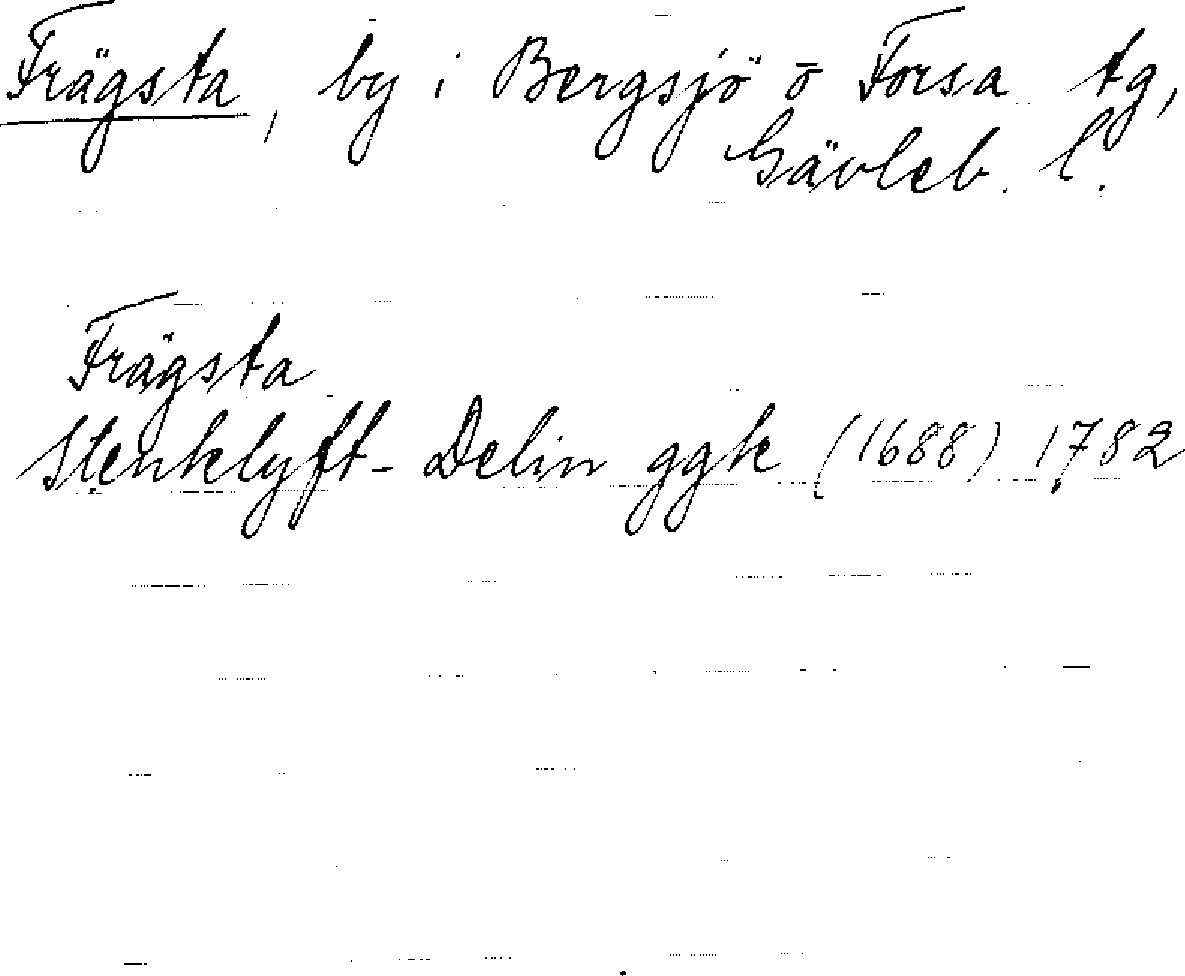 Frägsta, by i Bergsjö o Forsa tg,
Gävleb. l.
Frägsta
Stenklyft- Delin ggk (1688) 1782